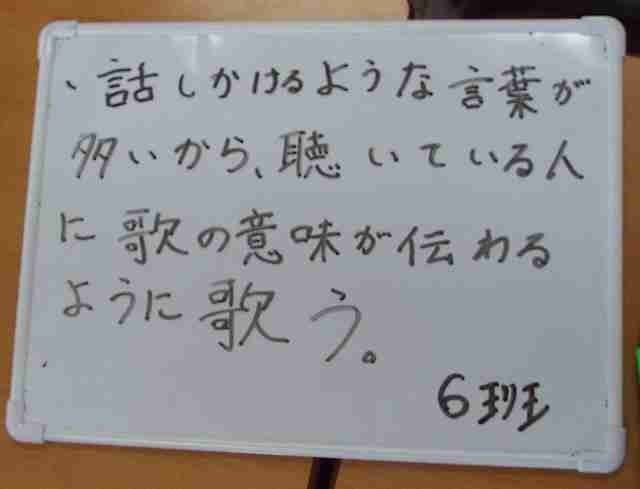 、話しかけるような言葉が
多いから、聴いている人
に歌の意味が伝わる
ように歌う。
6班